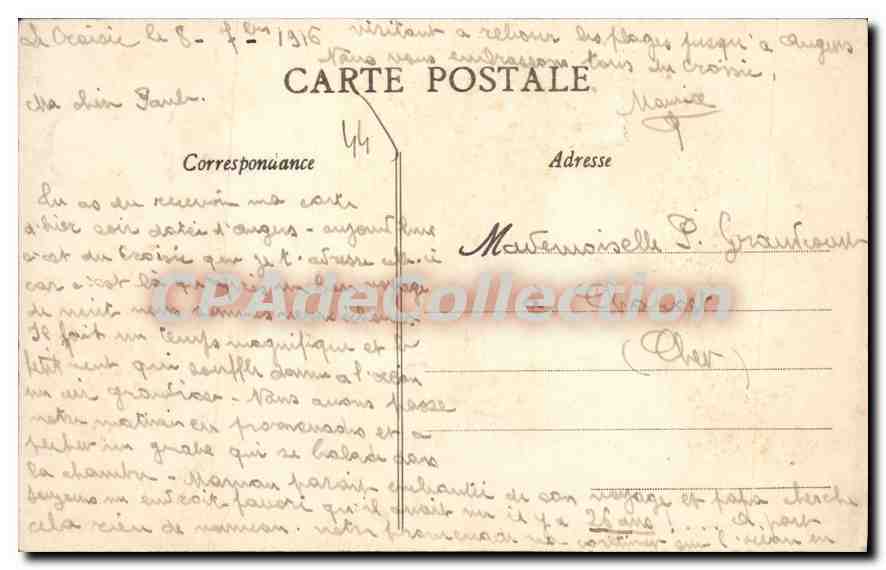 Le Croisic le 8 - 7bre 1916
Ma chère Paule.
CARTE POSTALE
44
Correspondance
Adresse
Tu as du recevoir ma carte
d'hier soir datée d'Angers - aujourd'hui
c'est du Croisic que je t'adresse celle-ci
car c'est là
de nuit nous sommes
Il fait un temps magnifique et le
petit vent qui souffle donne à l'océan
un air grandiose - Nous avons passé
notre matinée en promenades et a
pêcher un crabe qui se balade dans
la chambre - Maman parait enchantée de son voyage et papa cherche
toujours un endroit favori qu'il avait vu il y a 26 ans ! .... A part
cela rien de nouveau. notre promenade va continuer sur l'océan en
visitant a retour les plages jusqu'à Angers
Nous vous embrassons tous du Croisic,
Maurice
Mademoiselle P.
(Cher)
CPAdeCollection